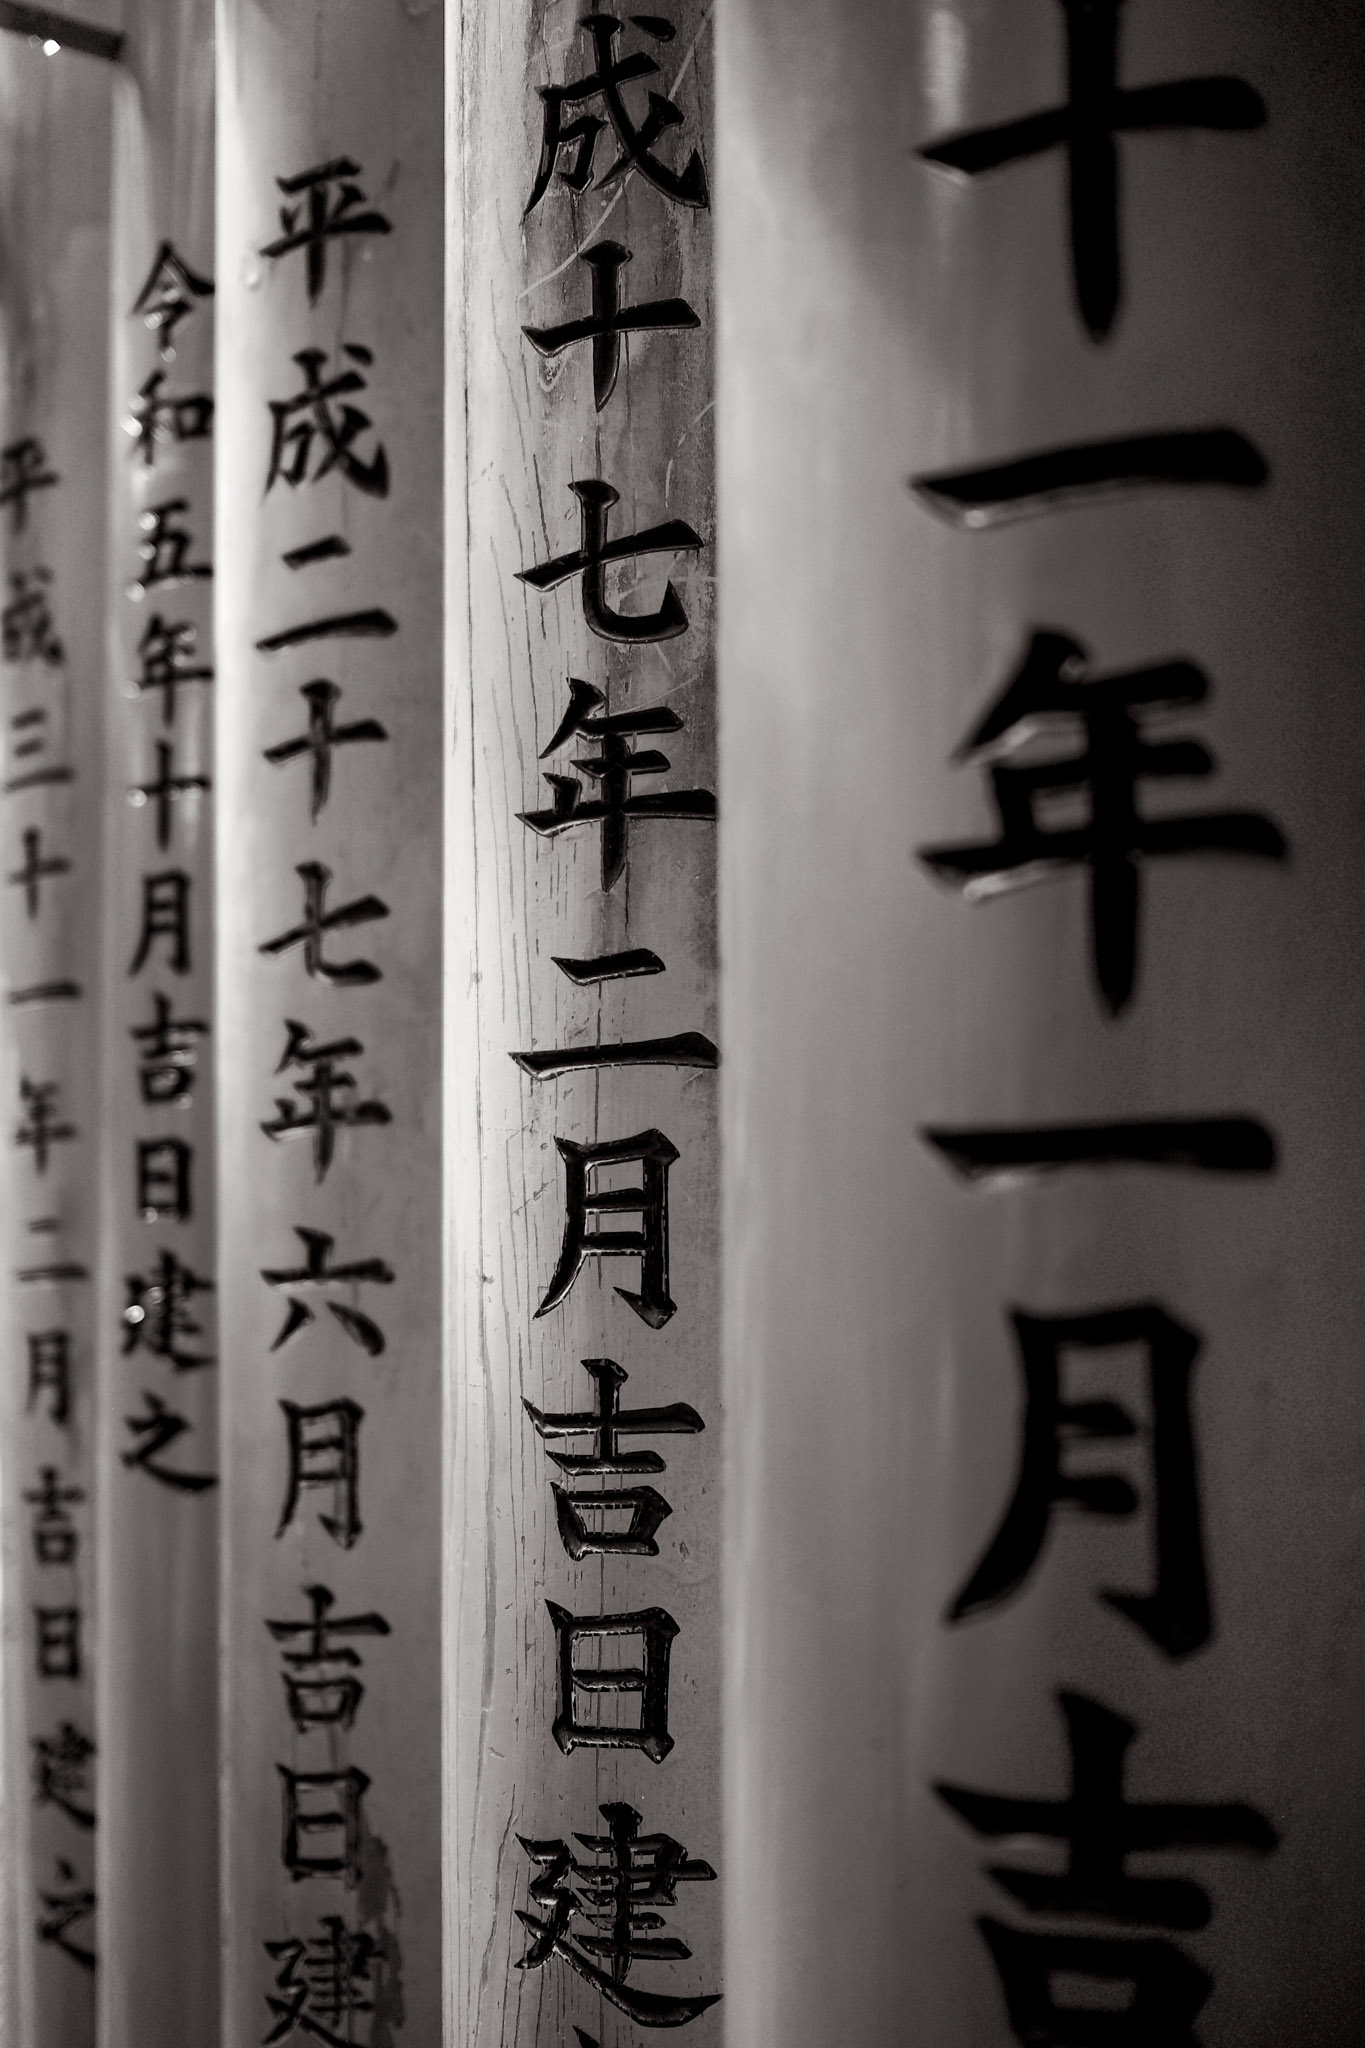 十一年一月吉
成十七年二月吉日建
平成二十七年六月吉日建
令和五年十月吉日建之
平成三十一年二月吉日建之